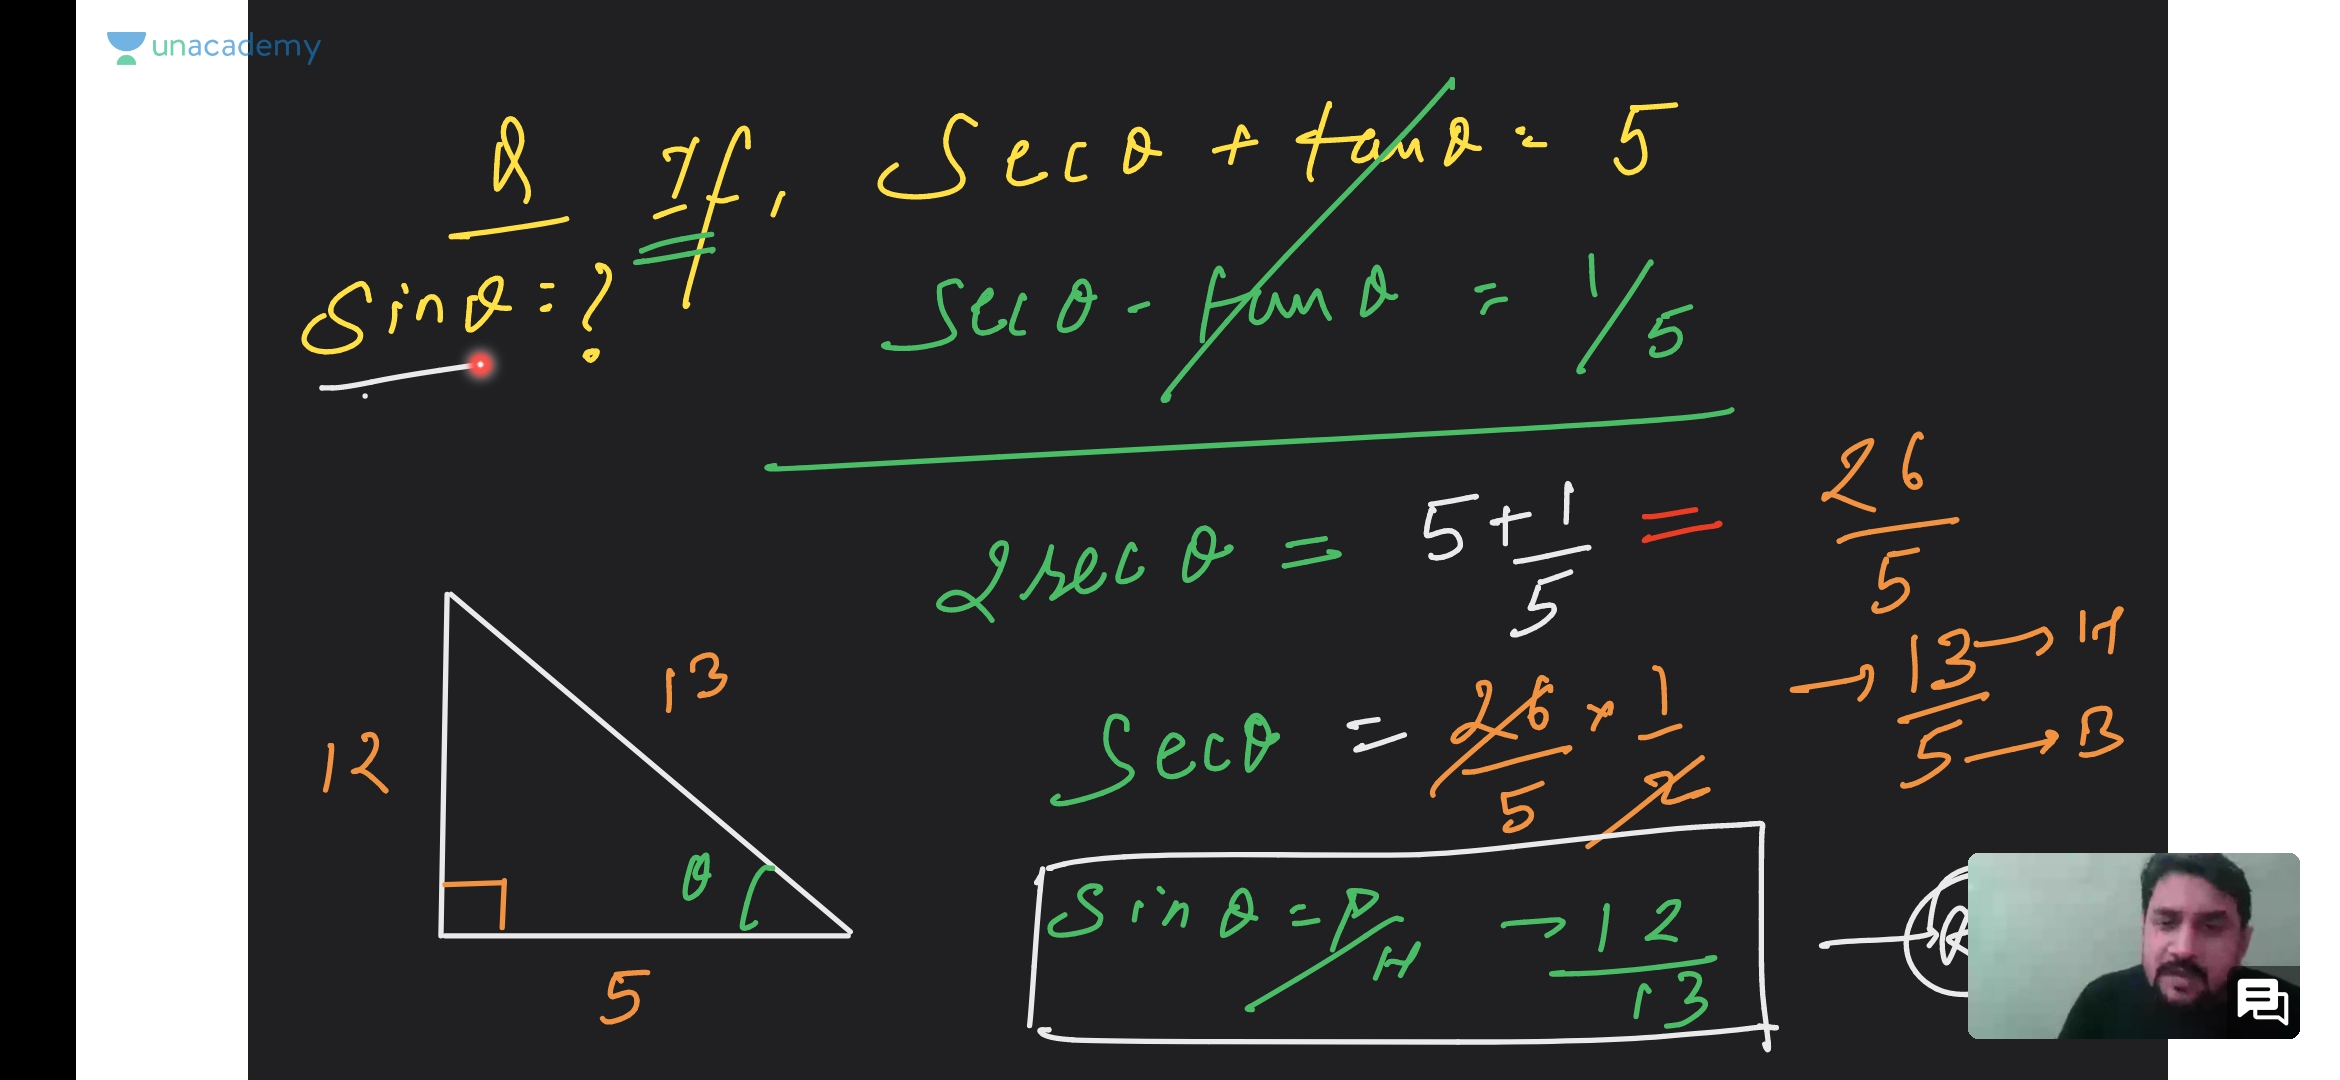 unacademy
Q If, Secθ + tanθ = 5
Sinθ = ?
Secθ - tanθ = 1/5
2 secθ = 5 + 1/5 = 26/5
Secθ = 26/5 × 1/2 → 13/5
13 → H
5 → B
12
13
θ
5
Sinθ = P/H → 12/13